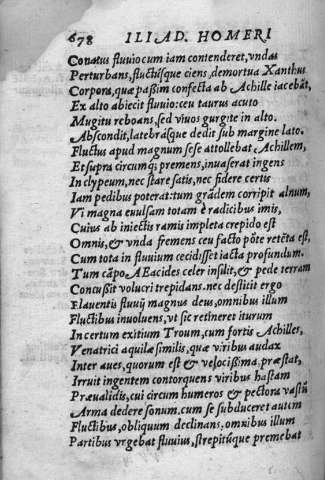 678 ILIAD. HOMERI
Conatus fluuio cum iam contenderet, vndas
Perturbans, fluctusque ciens, demortua Xanthus
Corpora, quæ paßim confecta ab Achille iacebāt,
Ex alto abiecit fluuio: ceu taurus acuto
Mugitu reboans, sed viuos gurgite in alto.
Abscondit, latebrasque dedit sub margine lato.
Fluctus apud magnum sese attollebat Achillem,
Et supra circumq; premens, inuaserat ingens
In clypeum, nec stare satis, nec fidere certis
Iam pedibus poterat: tum grādem corripit alnum,
Vi magna euulsam totam è radicibus imis,
Cuius ab iniectis ramis impleta crepido est
Omnis, & vnda fremens ceu facto pōte retēta est,
Cum tota in fluuium cecidisset iacta profundum.
Tum cāpo Aeacides celer insilit, & pede terram
Concußit volucri trepidans. nec destitit ergo
Flauentis fluuij magnus deus, omnibus illum
Fluctibus inuoluens, vt sic retineret iturum
In certum exitium Troum, cum fortis Achilles,
Venatrici aquilæ similis, quæ viribus audax
Inter aues, quorum est & velocißima, præstat,
Irruit ingentem contorquens viribus hastam
Præualidis, cui circum humeros & pectora vastū
Arma dedere sonum. cum se subduceret autem
Fluctibus, obliquum declinans, omnibus illum
Partibus vrgebat fluuius, strepitúque premebat